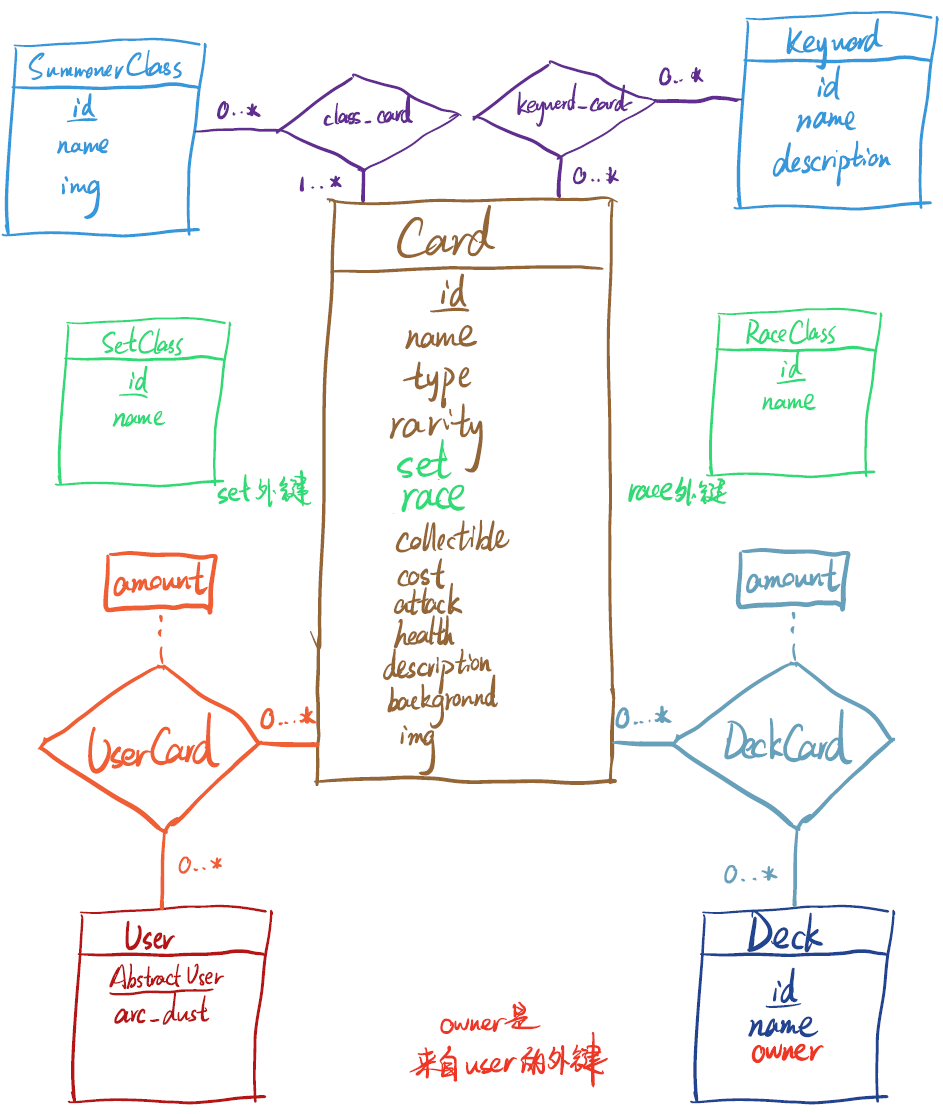 SummonerClass
id
name
img
0..*
class_card
1..*
keyword_card
0..*
0..*
Keyword
id
name
description
Card
id
name
type
rarity
set
race
collectible
cost
attack
health
description
background
img
SetClass
id
name
set外键
RaceClass
id
name
race外键
amount
UserCard
0...*
0..*
User
AbstractUser
arc_dust
amount
DeckCard
0...*
0...*
Deck
id
name
owner
owner是
来自user的外键